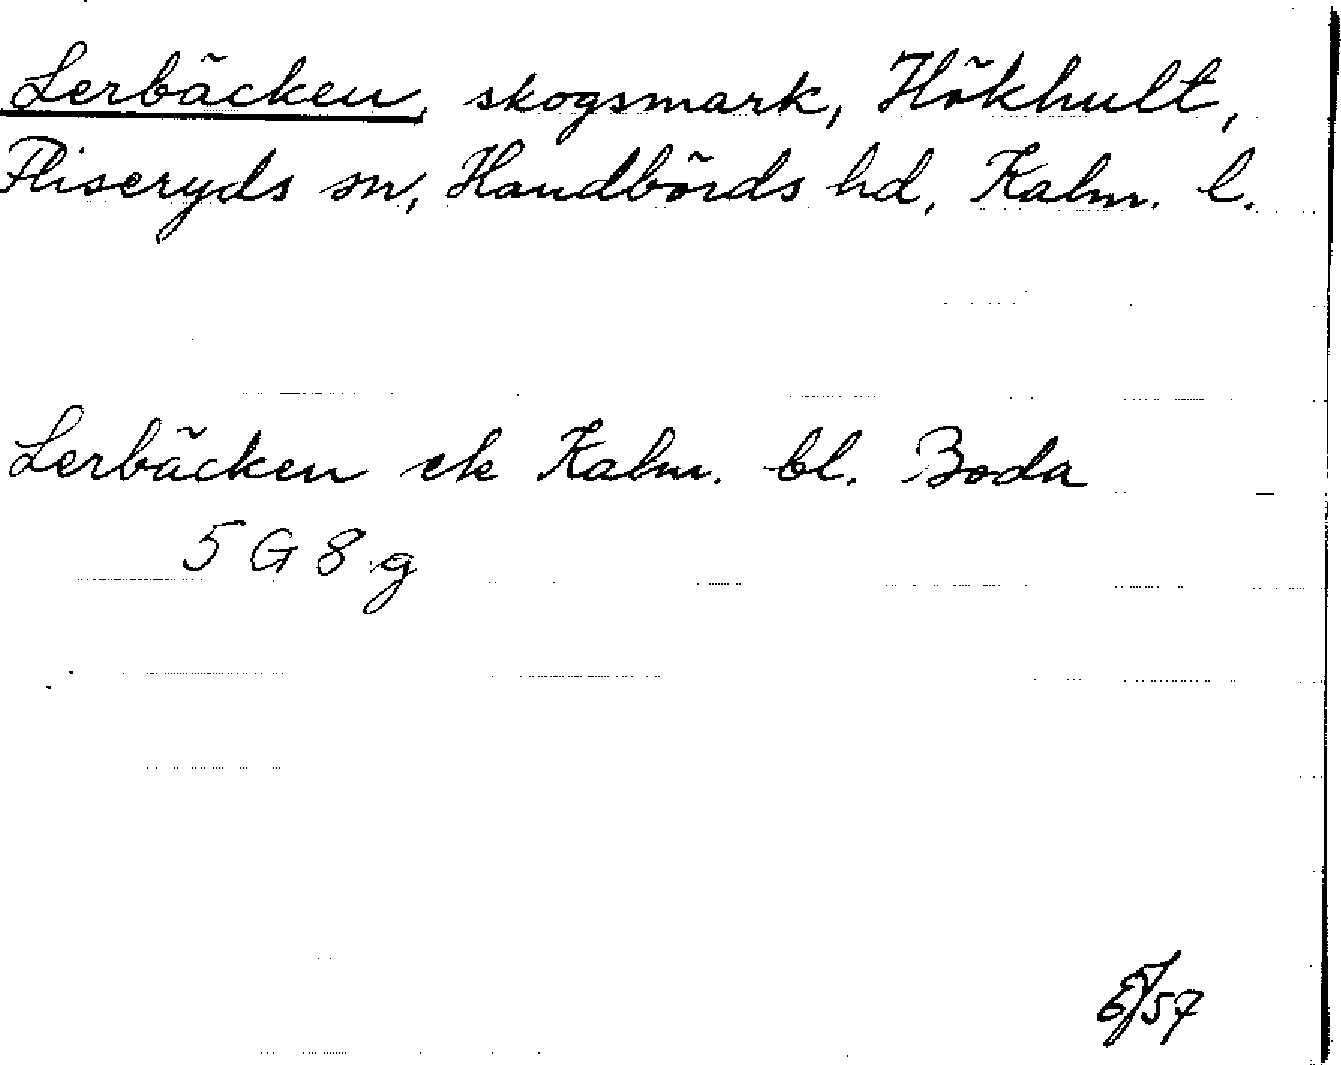 Lerbäcken, skogsmark, Hökhult,
Fliseryds sn, Handbörds hd, Kalm. l.
Lerbäcken ek Kalm. bl. Boda
5 G 8 g
/57